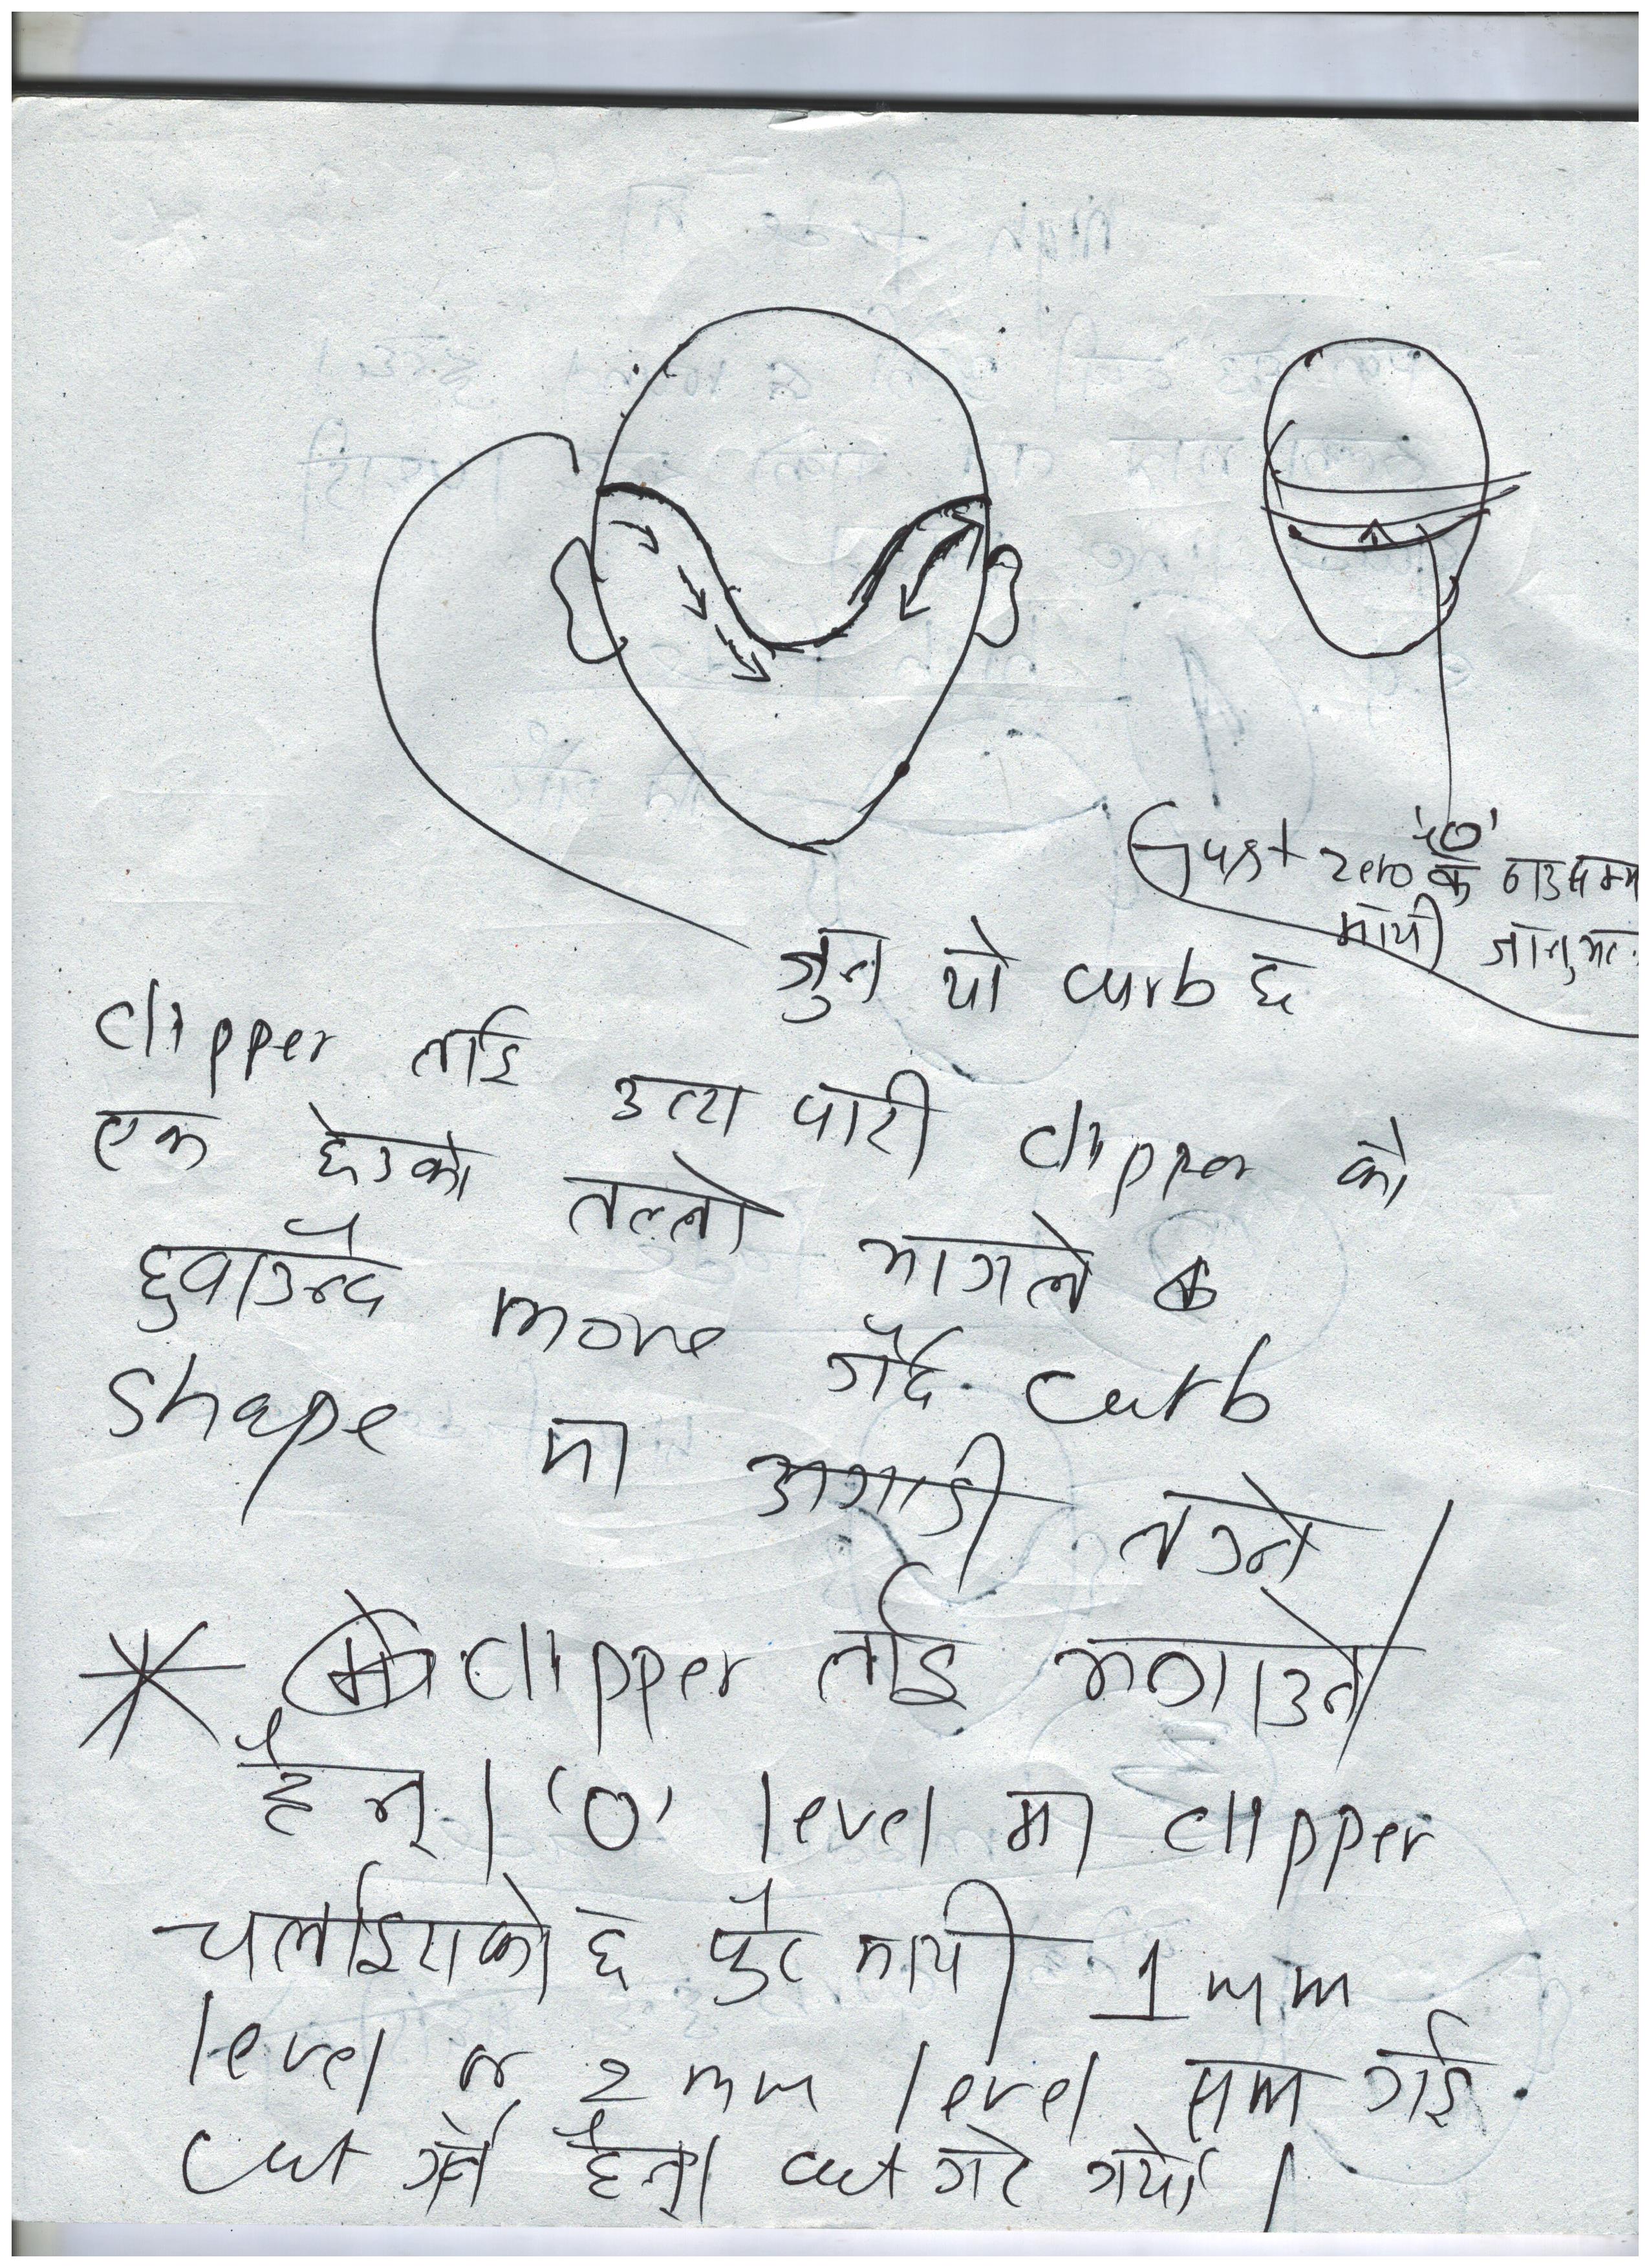 '0'
Gust zero के ठाउसम्म
माथी जानुभट
जुन यो curb छ
clipper लाई उल्टा पारी clipper को
एक छेउको तल्लो भागले
छुवाउन्दै move गर्दै curb
shape मा अगाडी लउने
* clipper लाई भगाउने
हैन्। '0' level मा clipper
चलाईएको छ फेट माथी 1 mm
level or 2 mm level सम्म गई
cut गर्ने हैन्। cut गरे गयो।